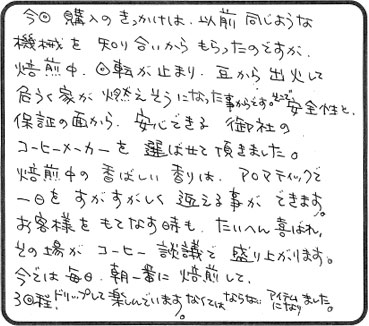 今回 購入のきっかけは、以前 同じような
機械を 知り合いから もらったのですが、
焙煎中、回転が止まり、豆から 出火して
危うく家が 燃えそうになった事からです。そこで安全性と、
保証の面から、安心できる 御社の
コーヒーメーカーを 選ばせて頂きました。
焙煎中の 香ばしい 香りは、アロマティックで
一日を すがすがしく 迎える事が できます。
お客様を もてなす時も、たいへん 喜ばれ、
その場が コーヒー 談議で 盛り上がります。
今では毎日、朝一番に 焙煎して、
3回程、ドリップして楽しんでいます。なくてはならない アイテムになりました。